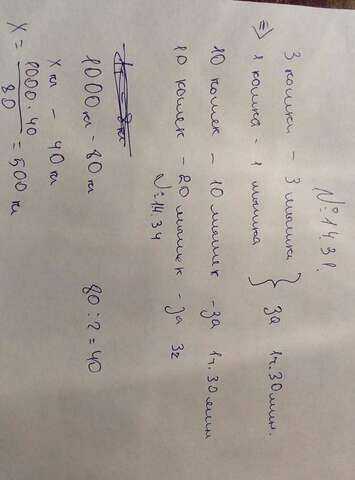 №14.31.
3 кошки - 3 мышки } за 1ч.30мин.
⇒ 1 кошка - 1 мышка
10 кошек - 10 мышек - за 1ч.30мин
10 кошек - 20 мышек - за 3ч
№14.34
1000кг - 80кг 80:2=40
х кг - 40кг
X = 1000·40 / 80 = 500кг